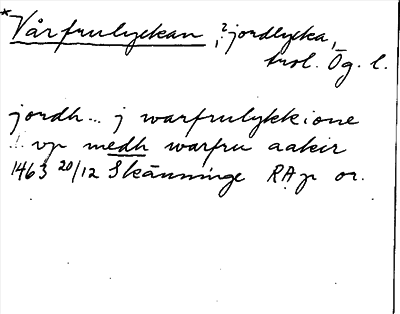 *Vårfrulyckan, ?jordlycka,
trol. Ög. l.
jordh... j warfrulykkione
... vp medh warfru aakir
1463 20/12 Skänninge RAp or.